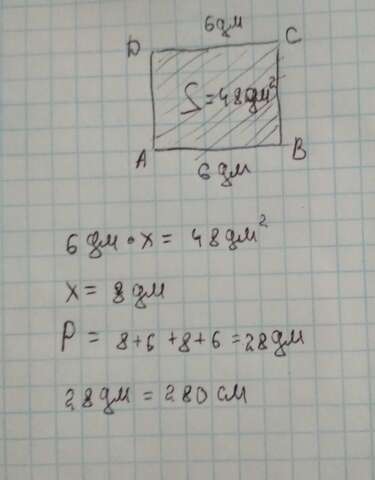 6 дм
D C
S = 48 дм²
A B
6 дм
6 дм • x = 48 дм²
x = 8 дм
P = 8+6+8+6 = 28 дм
28 дм = 280 см